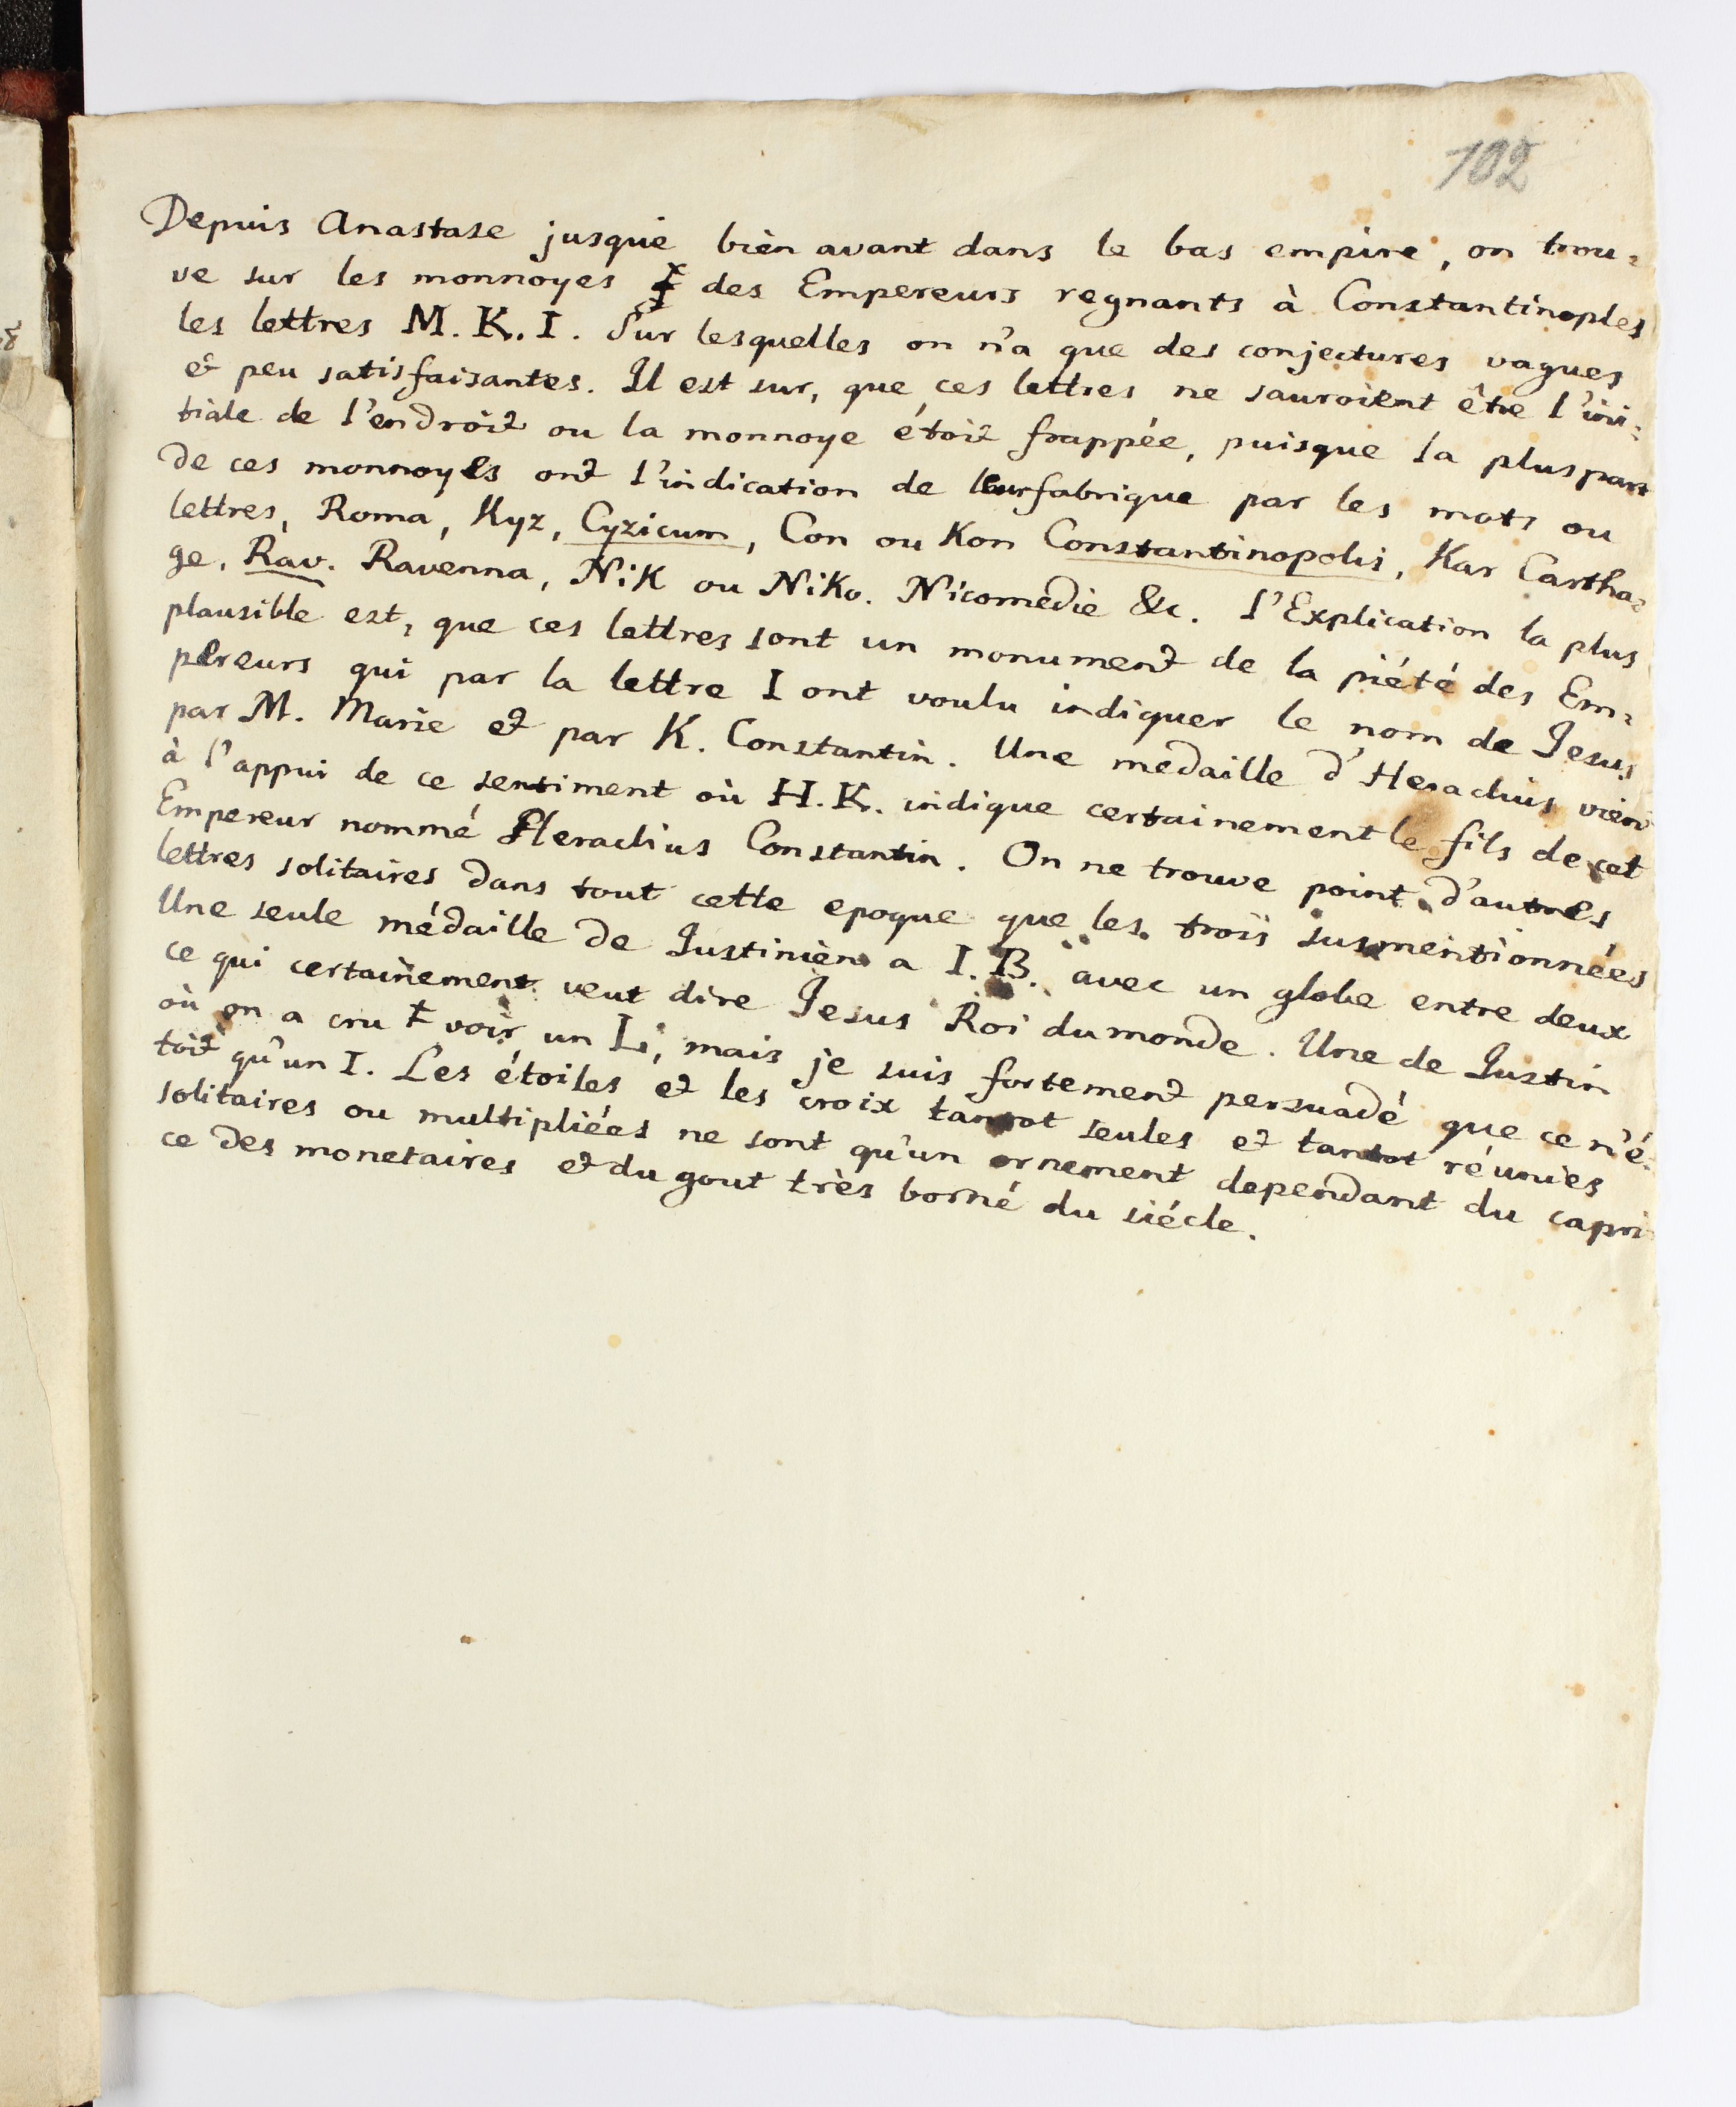 102
Depuis Anastase jusque bièn avant dans le bas empire, on trou=
ve sur les monnoyes des Empereurs regnants à Constantinoples
les lettres M. K. I. Sur lesquelles on n'a que des conjectures vagues
& peu satisfaisantes. Il est sur, que ces lettres ne sauroient être l'ini=
tiale de l'endroit ou la monnoye étoit frappée, puisque la pluspart
de ces monnoyes ont l'indication de leur fabrique par les mots ou
lettres, Roma, Kyz, Cyzicum, Con ou Kon Constantinopolis, Kar Cartha=
ge, Rav. Ravenna, NiK ou NiKo. Nicomedie &c. l'Explication la plus
plausible est, que ces lettres sont un monument de la piété des Em=
pereurs qui par la lettre I ont voulu indiquer le nom de Jesus
par M. Marie et par K. Constantin. Une medaille d'Heraclius vient
à l'appui de ce sentiment où H. K. indique certainement le fils de cet
Empereur nommé Heraclius Constantin. On ne trouve point d'autres
lettres solitaires dans tout cette epoque que les trois susmentionnées
Une seule médaille de Justinièn a I. B. avec un globe entre deux
ce qui certainement veut dire Jesus Roi du monde. Une de Justin
où on a cru voir un L, mais je suis fortement persuadé que ce n'é=
toit qu'un I. Les étoiles et les croix tantot seules et tantot réunies
solitaires ou multipliées ne sont qu'un ornement dependant du capri
ce des monetaires et du gout très borné du siécle.